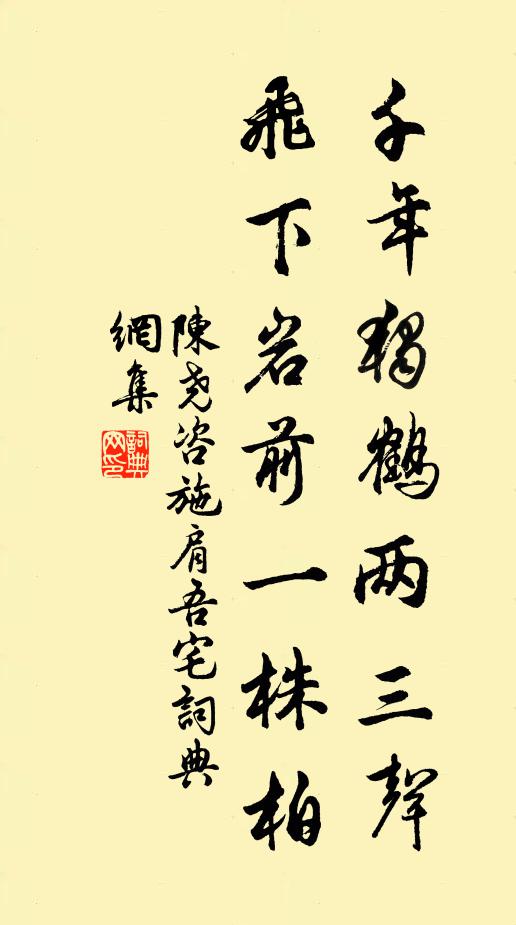 千年獨鶴两三聲
飛下岩前一株柏
陳尧咨施肩吾宅詞典
網集
詞典
网印